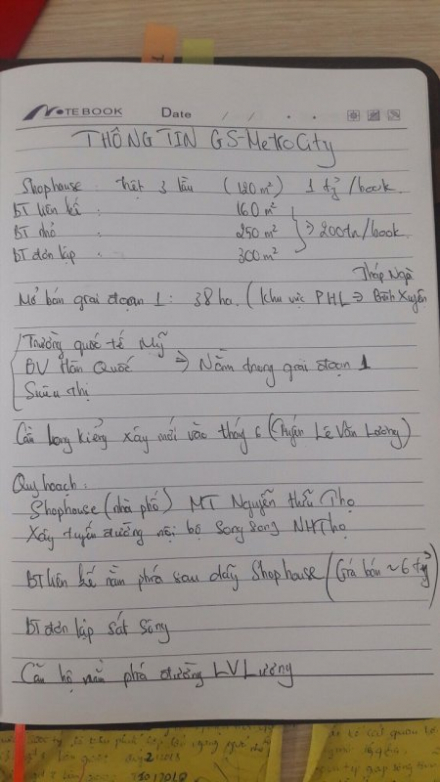 NOTEBOOK Date / / . .
THÔNG TIN GS-MetroCity
Shophouse : trệt 3 lầu (120 m²) 1 tỷ /book.
BT liên kế : 160 m²
BT nhỏ : 250 m² => 200tr/book.
BT đơn lập : 300 m²
Tháp Ngà
Mở bán giai đoạn 1 : 38 ha. (Khu vực PHL => Bình Xuyên
Trường quốc tế Mỹ
BV Hàn Quốc => Nằm trong giai đoạn 1
Siêu thị
Cầu Long Kiểng xây mới vào tháng 6 (Lê Văn Lương)
Quy hoạch :
Shophouse (nhà phố) MT Nguyễn Hữu Thọ
Xây tuyến đường nội bộ song song NHThọ
BT liên kế nằm phía sau dãy Shophouse (Giá bán ~ 6 tỷ)
BT đơn lập sát sông
Căn hộ nằm phía đường LVLương